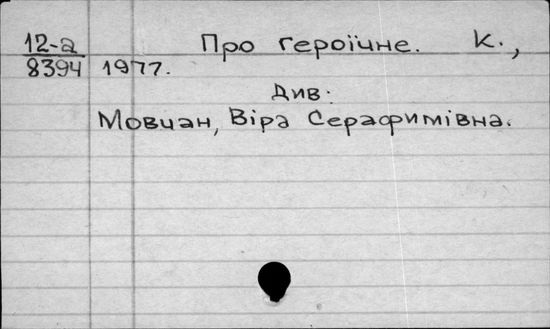 12-а Про героїчне. К.,
8394 1977.
Див:
Мовчан, Віра Серафимівна.